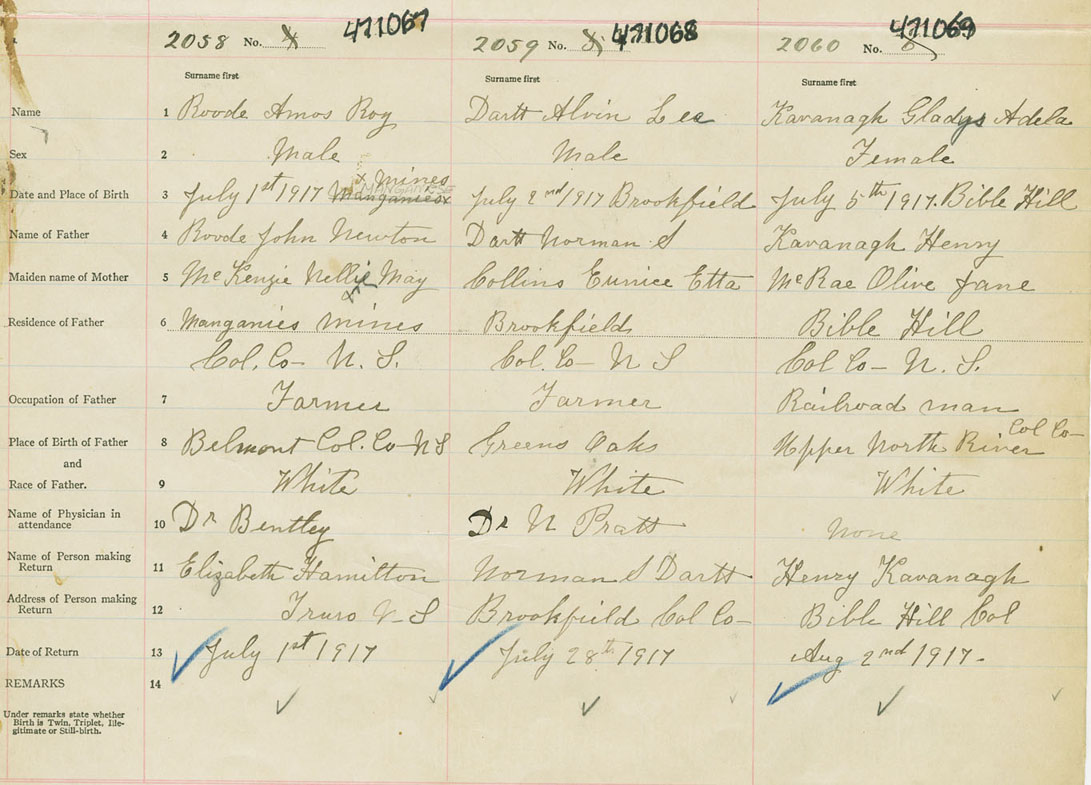 2058 No. 4 471067 2059 No. 5 471068 2060 No. 6 471069
Surname first Surname first Surname first
Name 1 Roode Amos Roy Dartt Alvin Lee Kavanagh Gladys Adela
Sex 2 Male Male Female
x mines
MANGANESE
Date and Place of Birth 3 July 1st 1917 Manganiesx July 2nd 1917 Brookfield July 5th 1917. Bible Hill
Name of Father 4 Roode John Newton Dartt Norman S Kavanagh Henry
Maiden name of Mother 5 McKenzie Nellie May Collins Eunice Etta McRae Olive Jane
Residence of Father 6 Manganies mines Brookfield Bible Hill
Col. Co— N. S. Col. Co— N S Col Co— N. S.
Occupation of Father 7 Farmer Farmer Railroad man
Col Co—
Place of Birth of Father 8 Belmont Col. Co— N S Greens Oaks Upper North River
and
Race of Father. 9 White White White
Name of Physician in
attendance 10 Dr Bentley Dr N Pratt None
Name of Person making
Return 11 Elizabeth Hamilton Norman S Dartt Henry Kavanagh
Address of Person making
Return 12 Truro N S Brookfield Col Co— Bible Hill Col
Date of Return 13 July 1st 1917 July 28th 1917 Aug 2nd 1917.
REMARKS 14
Under remarks state whether
Birth is Twin, Triplet, Ille-
gitimate or Still-birth.